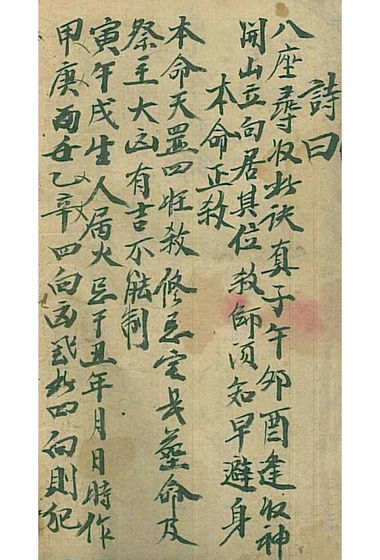 詩曰
八座尋收此诀真子午卯酉逢收神
開山立向居其位教師須知早避身
本命正殺
本命天罡四旺殺修忌定是塟命及
祭主大凶有吉不能制
寅午戌生人属火忌于丑年月日時作
甲庚丙壬乙辛四向凶或如四向則犯